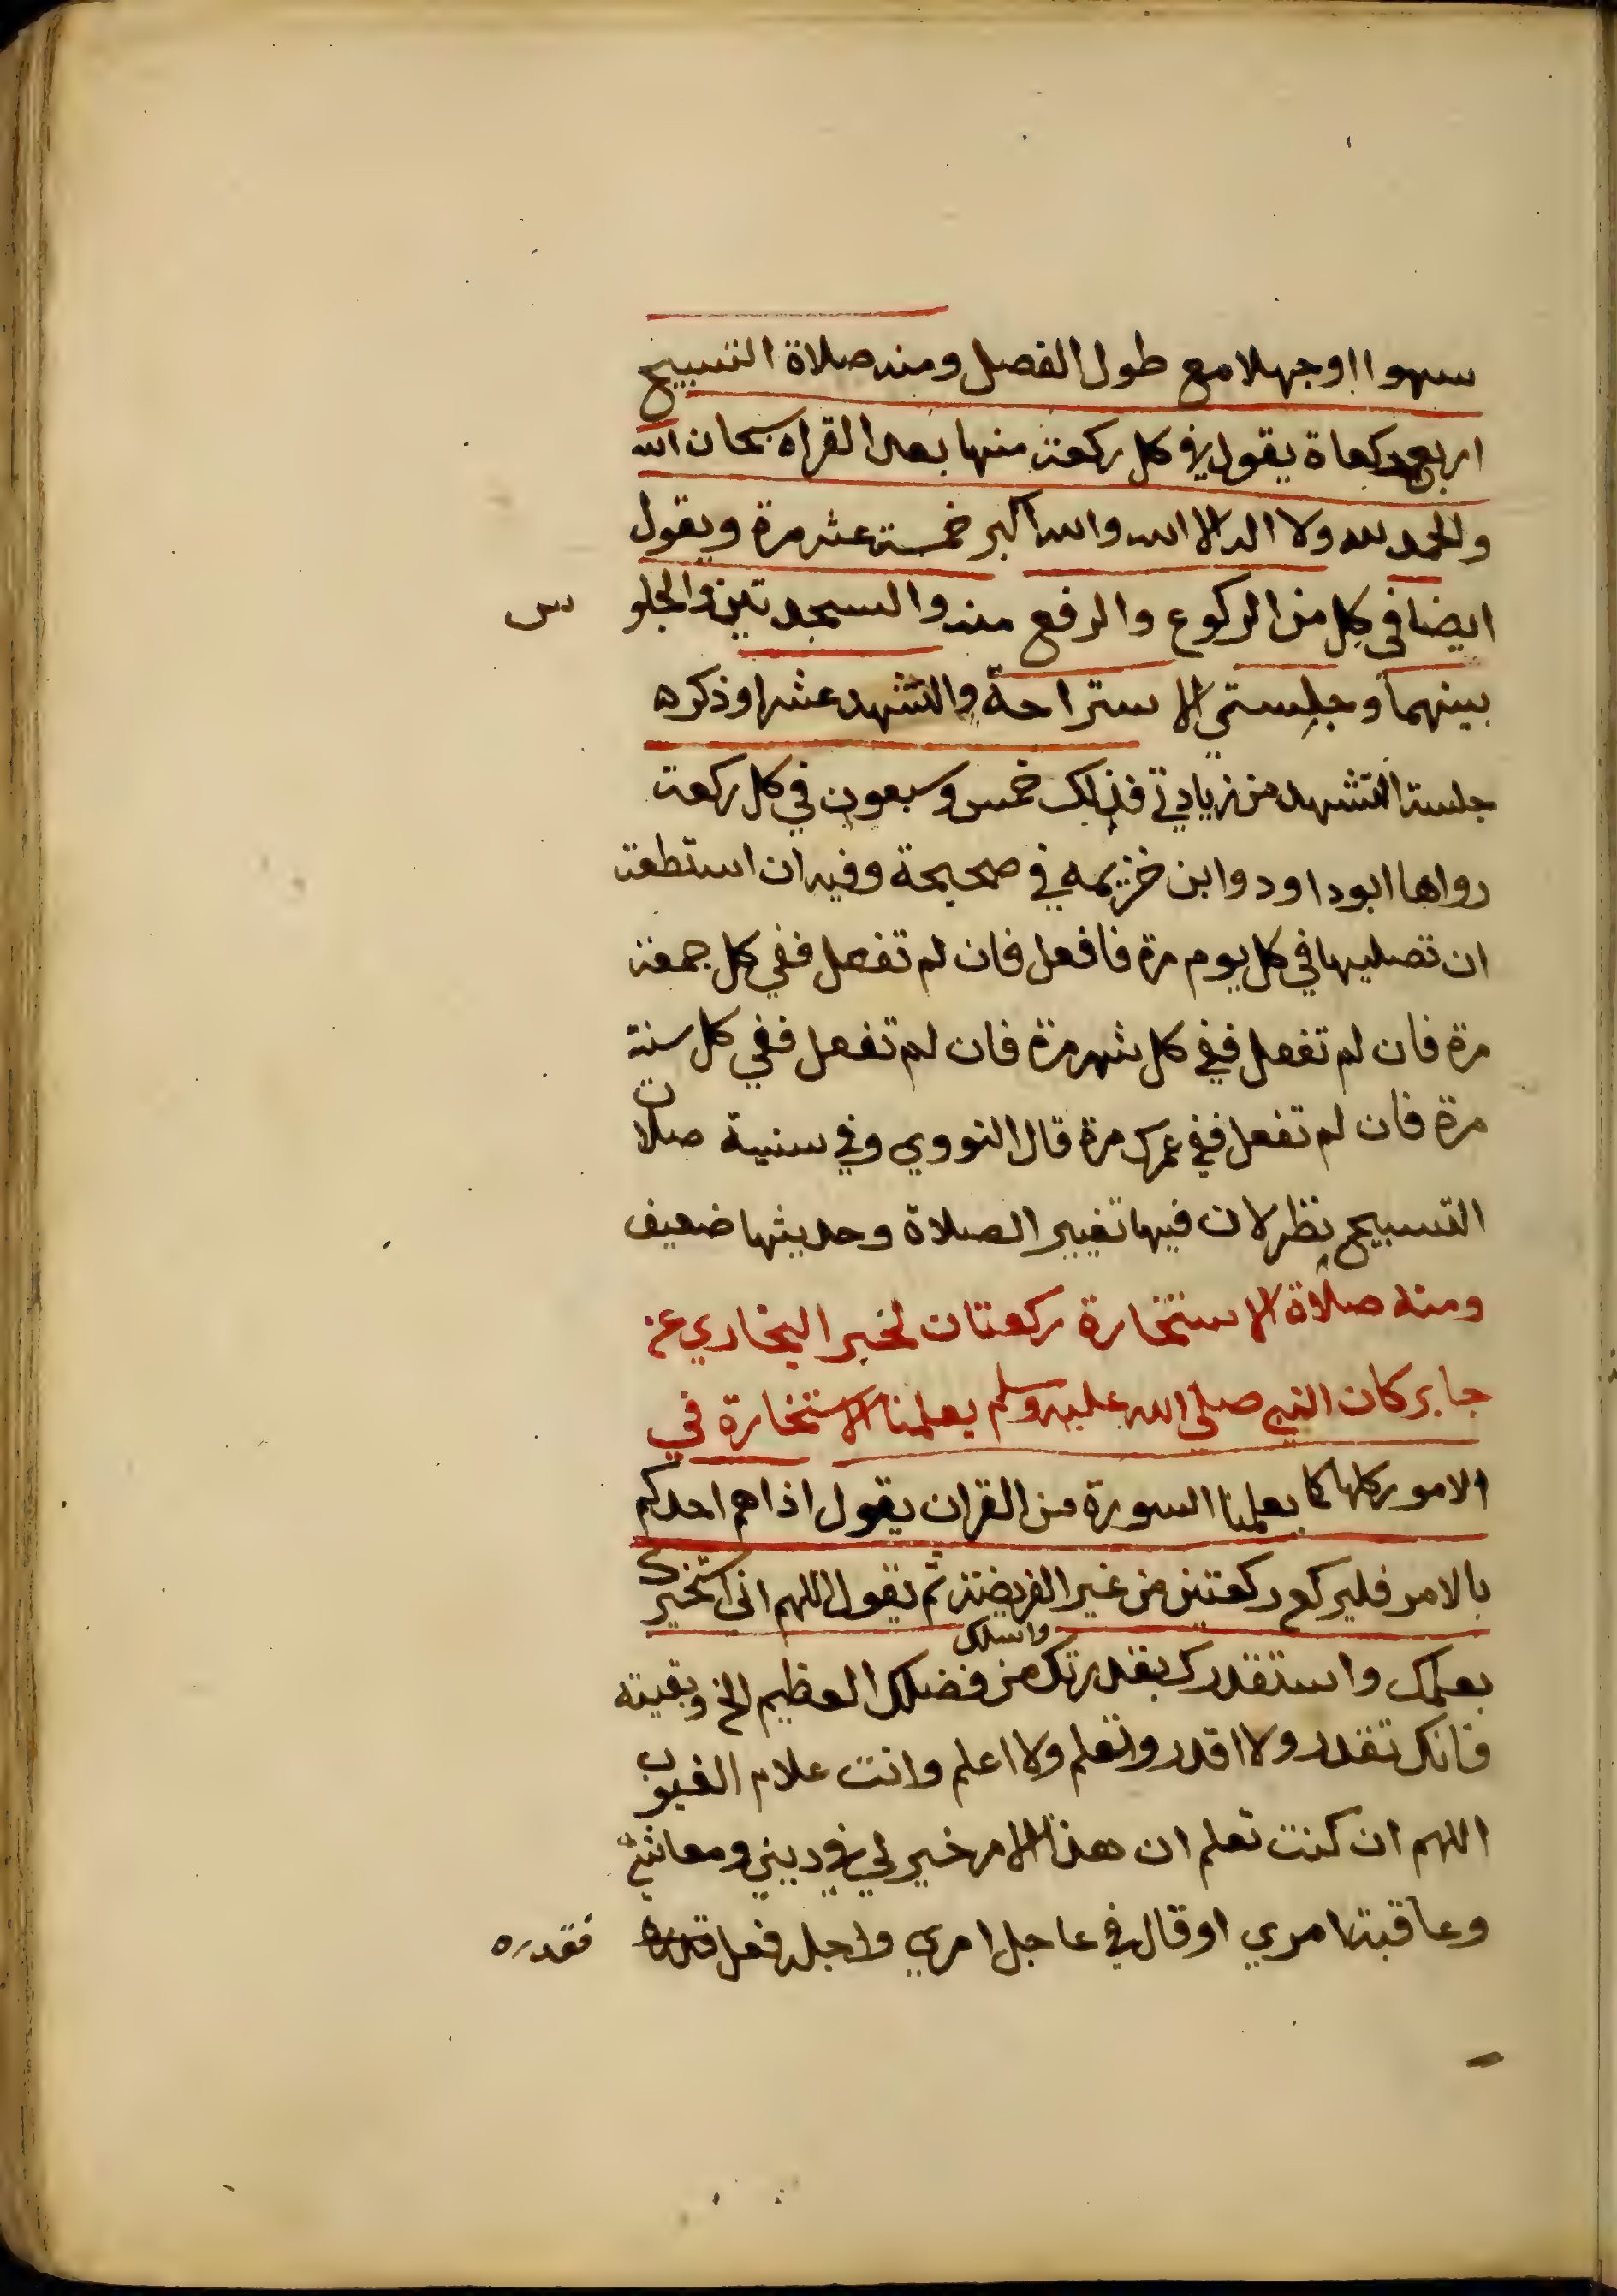 سهوا اوجهلا مع طول الفصل ومنه صلاة التسبيح
اربع ركعاة يقول في كل ركعة منها بعد القراه سبحان الله
والحمد لله ولا اله الا الله والله اكبر خمسة عشر مرة ويقول
ايضا في كل من الركوع والرفع منه والسجدتين والجلو س
بينهما وجلستي الاستراحة والتشهد عشرا وذكره
جلسة التشهد من زيادتي فذلك خمس وسبعون في كل ركعة
رواها ابوداود وابن خزيمه في صحيحة وفيه ان استطعة
ان تصليها في كل يوم مرة فافعل فان لم تفعل ففي كل جمعة
مرة فان لم تفعل ففي كل شهر مرة فان لم تفعل ففي كل سنة
مرة فان لم تفعل ففي عمرك مرة قال النووي وفي سنية صلات
التسبيح نظر لان فيها تغيير الصلاة وحديثها ضعيف
ومنه صلاة الاستخارة ركعتان لخبر البخاري عن
جابر كان النبي صلى الله عليه وسلم يعلمنا الاستخارة في
الامور كلها كما يعلمنا السورة من القران يقول اذا هم احدكم
بالامر فليركع ركعتين من غير الفريضة ثم يقول اللهم اني استخيرك
بعلمك واستقدرك بقدرتك واسئلك من فضلك العظيم الخ وبقيته
فانك تقدر ولا اقدر وتعلم ولا اعلم وانت علام الغيوب
اللهم ان كنت تعلم ان هذا الامر خير لي في ديني ومعاشي
وعاقبة امري او قال في عاجل امري واجله فعل قدره
فقدره